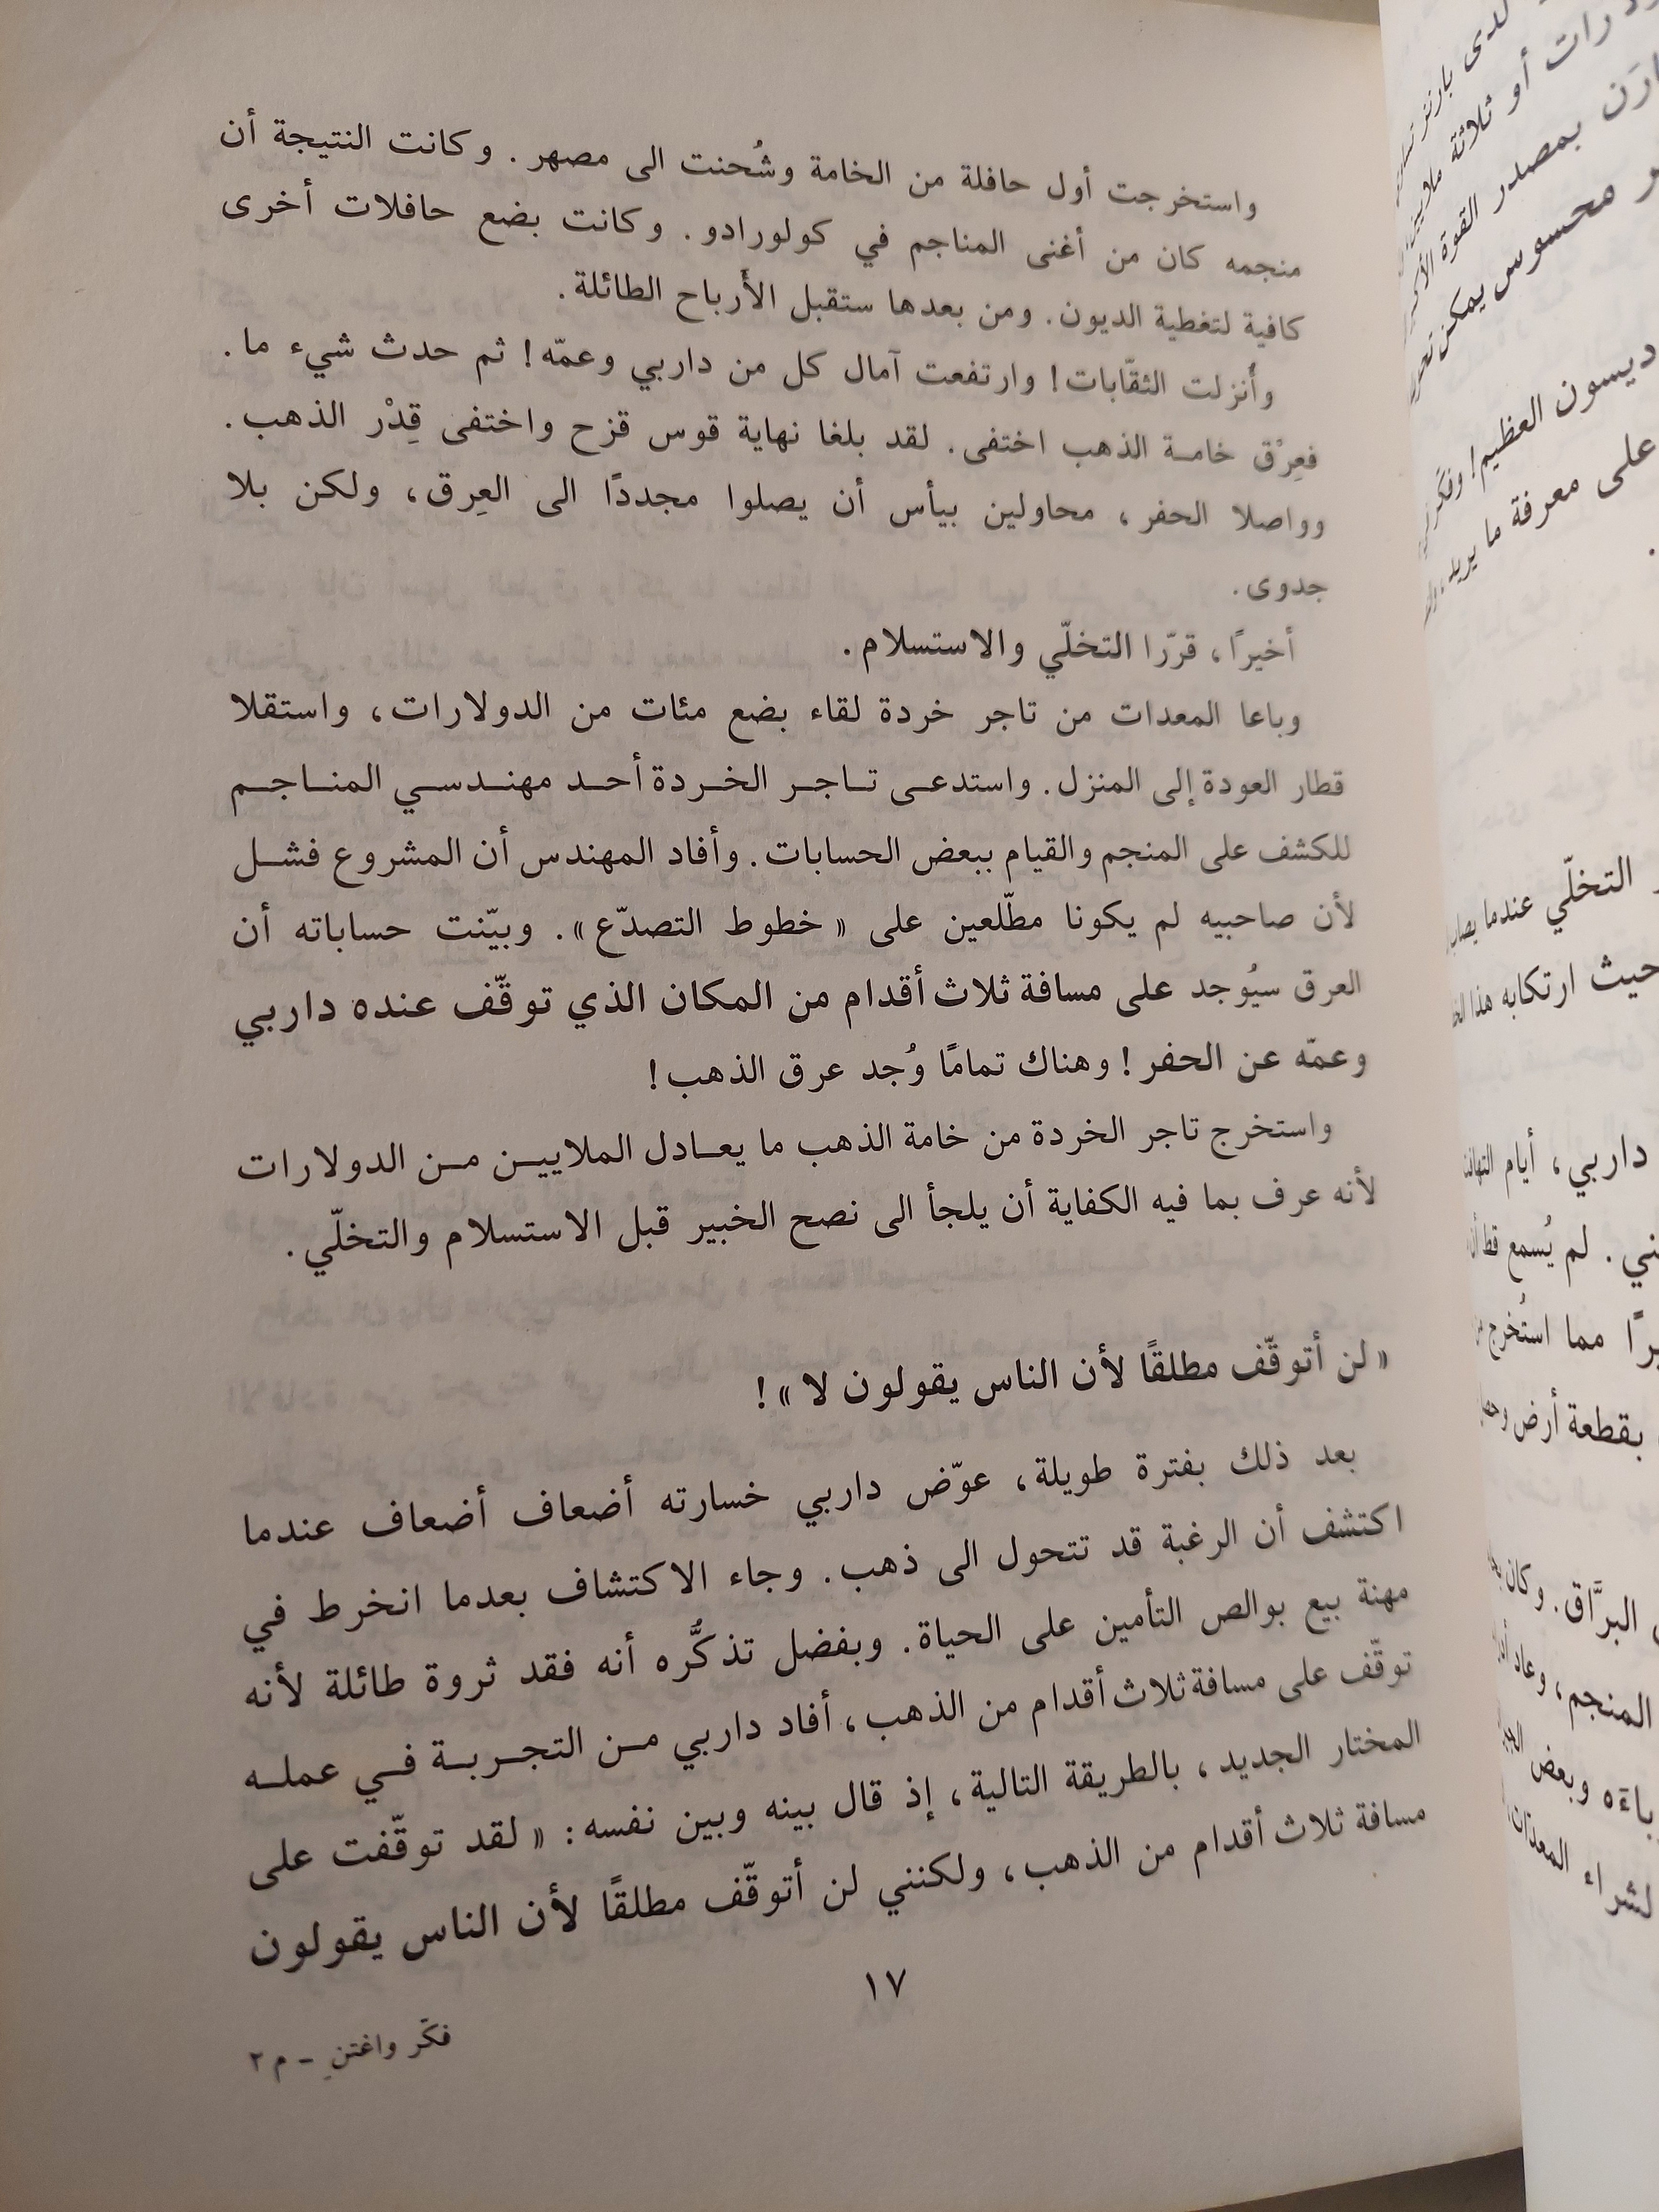 واستخرجت أول حافلة من الخامة وشُحنت الى مصهر. وكانت النتيجة أن
منجمه كان من أغنى المناجم في كولورادو. وكانت بضع حافلات أخرى
كافية لتغطية الديون. ومن بعدها ستقبل الأرباح الطائلة.
وأُنزلت الثقّابات! وارتفعت آمال كل من داربي وعمّه! ثم حدث شيء ما.
فعِرْق خامة الذهب اختفى. لقد بلغا نهاية قوس قزح واختفى قِدْر الذهب.
وواصلا الحفر، محاولين بيأس أن يصلوا مجددًا الى العِرق، ولكن بلا
جدوى.
أخيرًا، قرّرا التخلّي والاستسلام.
وباعا المعدات من تاجر خردة لقاء بضع مئات من الدولارات، واستقلا
قطار العودة إلى المنزل. واستدعى تاجر الخردة أحد مهندسي المناجم
للكشف على المنجم والقيام ببعض الحسابات. وأفاد المهندس أن المشروع فشل
لأن صاحبيه لم يكونا مطّلعين على «خطوط التصدّع». وبيّنت حساباته أن
العرق سيُوجد على مسافة ثلاث أقدام من المكان الذي توقّف عنده داربي
وعمّه عن الحفر! وهناك تمامًا وُجد عرق الذهب!
واستخرج تاجر الخردة من خامة الذهب ما يعادل الملايين من الدولارات
لأنه عرف بما فيه الكفاية أن يلجأ الى نصح الخبير قبل الاستسلام والتخلّي.
«لن أتوقّف مطلقًا لأن الناس يقولون لا»!
بعد ذلك بفترة طويلة، عوّض داربي خسارته أضعاف أضعاف عندما
اكتشف أن الرغبة قد تتحول الى ذهب. وجاء الاكتشاف بعدما انخرط في
مهنة بيع بوالص التأمين على الحياة. وبفضل تذكُّره أنه فقد ثروة طائلة لأنه
توقّف على مسافة ثلاث أقدام من الذهب، أفاد داربي من التجربة في عمله
المختار الجديد، بالطريقة التالية، إذ قال بينه وبين نفسه: «لقد توقّفت على
مسافة ثلاث أقدام من الذهب، ولكنني لن أتوقّف مطلقًا لأن الناس يقولون
١٧
فكّر واغتنِ - م ٢
لدى بارنز
رات أو ثلاثة ملايين
بمصدر القوة
محسوس يمكن
ديسون العظيم!
على معرفة ما يريد
التخلّي عندما
حيث ارتكابه هذا
داربي، أيام
لم يُسمع قط
مما استُخرج
بقطعة أرض
البرَّاق. وكان
المنجم، وعاد
وبعض
لشراء